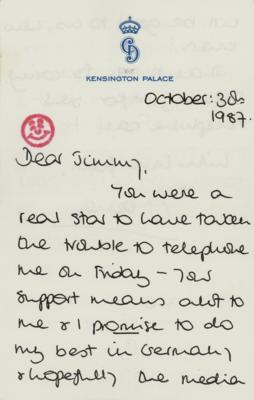 KENSINGTON PALACE
October: 30th
1987.
Dear Jimmy,
You were a
real star to have taken
the trouble to telephone
me on Friday - Your
support means alot to
me & I promise to do
my best in Germany
& hopefully the media